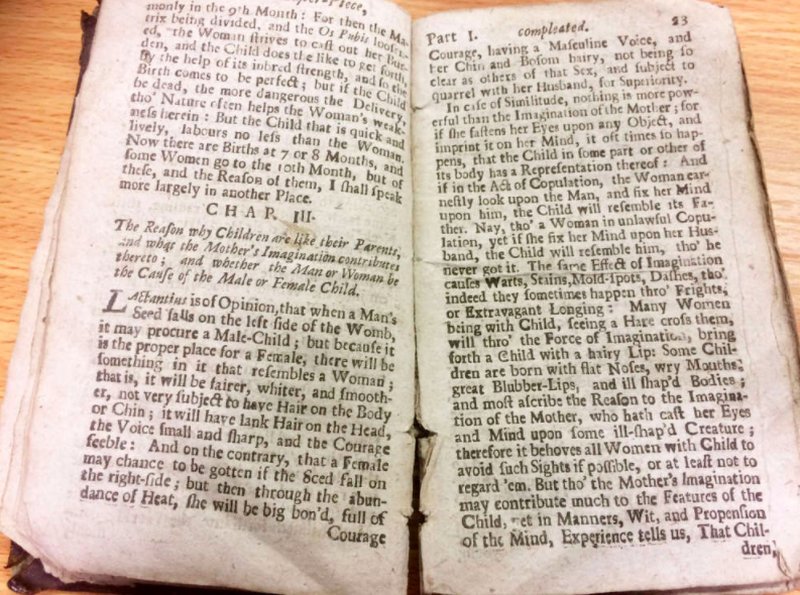 monly in the 9th Month: For then the Ma-
trix being divided, and the Os Pubis loosn-
ed, the Woman strives to cast out her Bur-
den, and the Child does the like to get forth,
by the help of its inbred strength, and so the
Birth comes to be perfect; but if the Child
be dead, the more dangerous the Delivery,
tho' Nature often helps the Woman's weak-
ness herein: But the Child that is quick and
lively, labours no less than the Woman.
Now there are Births at 7 or 8 Months, and
some Women go to the 10th Month, but of
these, and the Reason of them, I shall speak
more largely in another Place.
CHAP. III.
The Reason why Children are like their Parents,
and what the Mother's Imagination contributes
thereto; and whether the Man or Woman be
the Cause of the Male or Female Child.
LActantius is of Opinion, that when a Man's
Seed falls on the left side of the Womb,
it may procure a Male-Child; but because it
is the proper place for a Female, there will be
something in it that resembles a Woman;
that is, it will be fairer, whiter, and smooth-
er, not very subject to have Hair on the Body
or Chin; it will have lank Hair on the Head,
the Voice small and sharp, and the Courage
feeble: And on the contrary, that a Female
may chance to be gotten if the Seed fall on
the right-side; but then through the abun-
dance of Heat, she will be big bon'd, full of
Courage
Part I. compleated. 23
Courage, having a Masculine Voice, and
her Chin and Bosom hairy, not being so
clear as others of that Sex, and subject to
quarrel with her Husband, for Superiority.
In case of Similitude, nothing is more pow-
erful than the Imagination of the Mother; for
if she fastens her Eyes upon any Object, and
imprint it on her Mind, it oft times so hap-
pens, that the Child in some part or other of
its body has a Representation thereof: And
if in the Act of Copulation, the Woman ear-
nestly look upon the Man, and fix her Mind
upon him, the Child will resemble its Fa-
ther. Nay, tho' a Woman in unlawful Copu-
lation, yet if she fix her Mind upon her Hus-
band, the Child will resemble him, tho' he
never got it. The same Effect of Imagination
causes Warts, Stains, Mold-spots, Dashes, tho'
indeed they sometimes happen thro' Frights,
or Extravagant Longing: Many Women
being with Child, seeing a Hare cross them,
will thro' the Force of Imagination, bring
forth a Child with a hairy Lip: Some Chil-
dren are born with flat Noses, wry Mouths,
great Blubber-Lips, and ill shap'd Bodies;
and most ascribe the Reason to the Imagina-
tion of the Mother, who hath cast her Eyes
and Mind upon some ill-shap'd Creature;
therefore it behoves all Women with Child to
avoid such Sights if possible, or at least not to
regard 'em. But tho' the Mother's Imagination
may contribute much to the Features of the
Child, yet in Manners, Wit, and Propension
of the Mind, Experience tells us, That Chil-
dren,